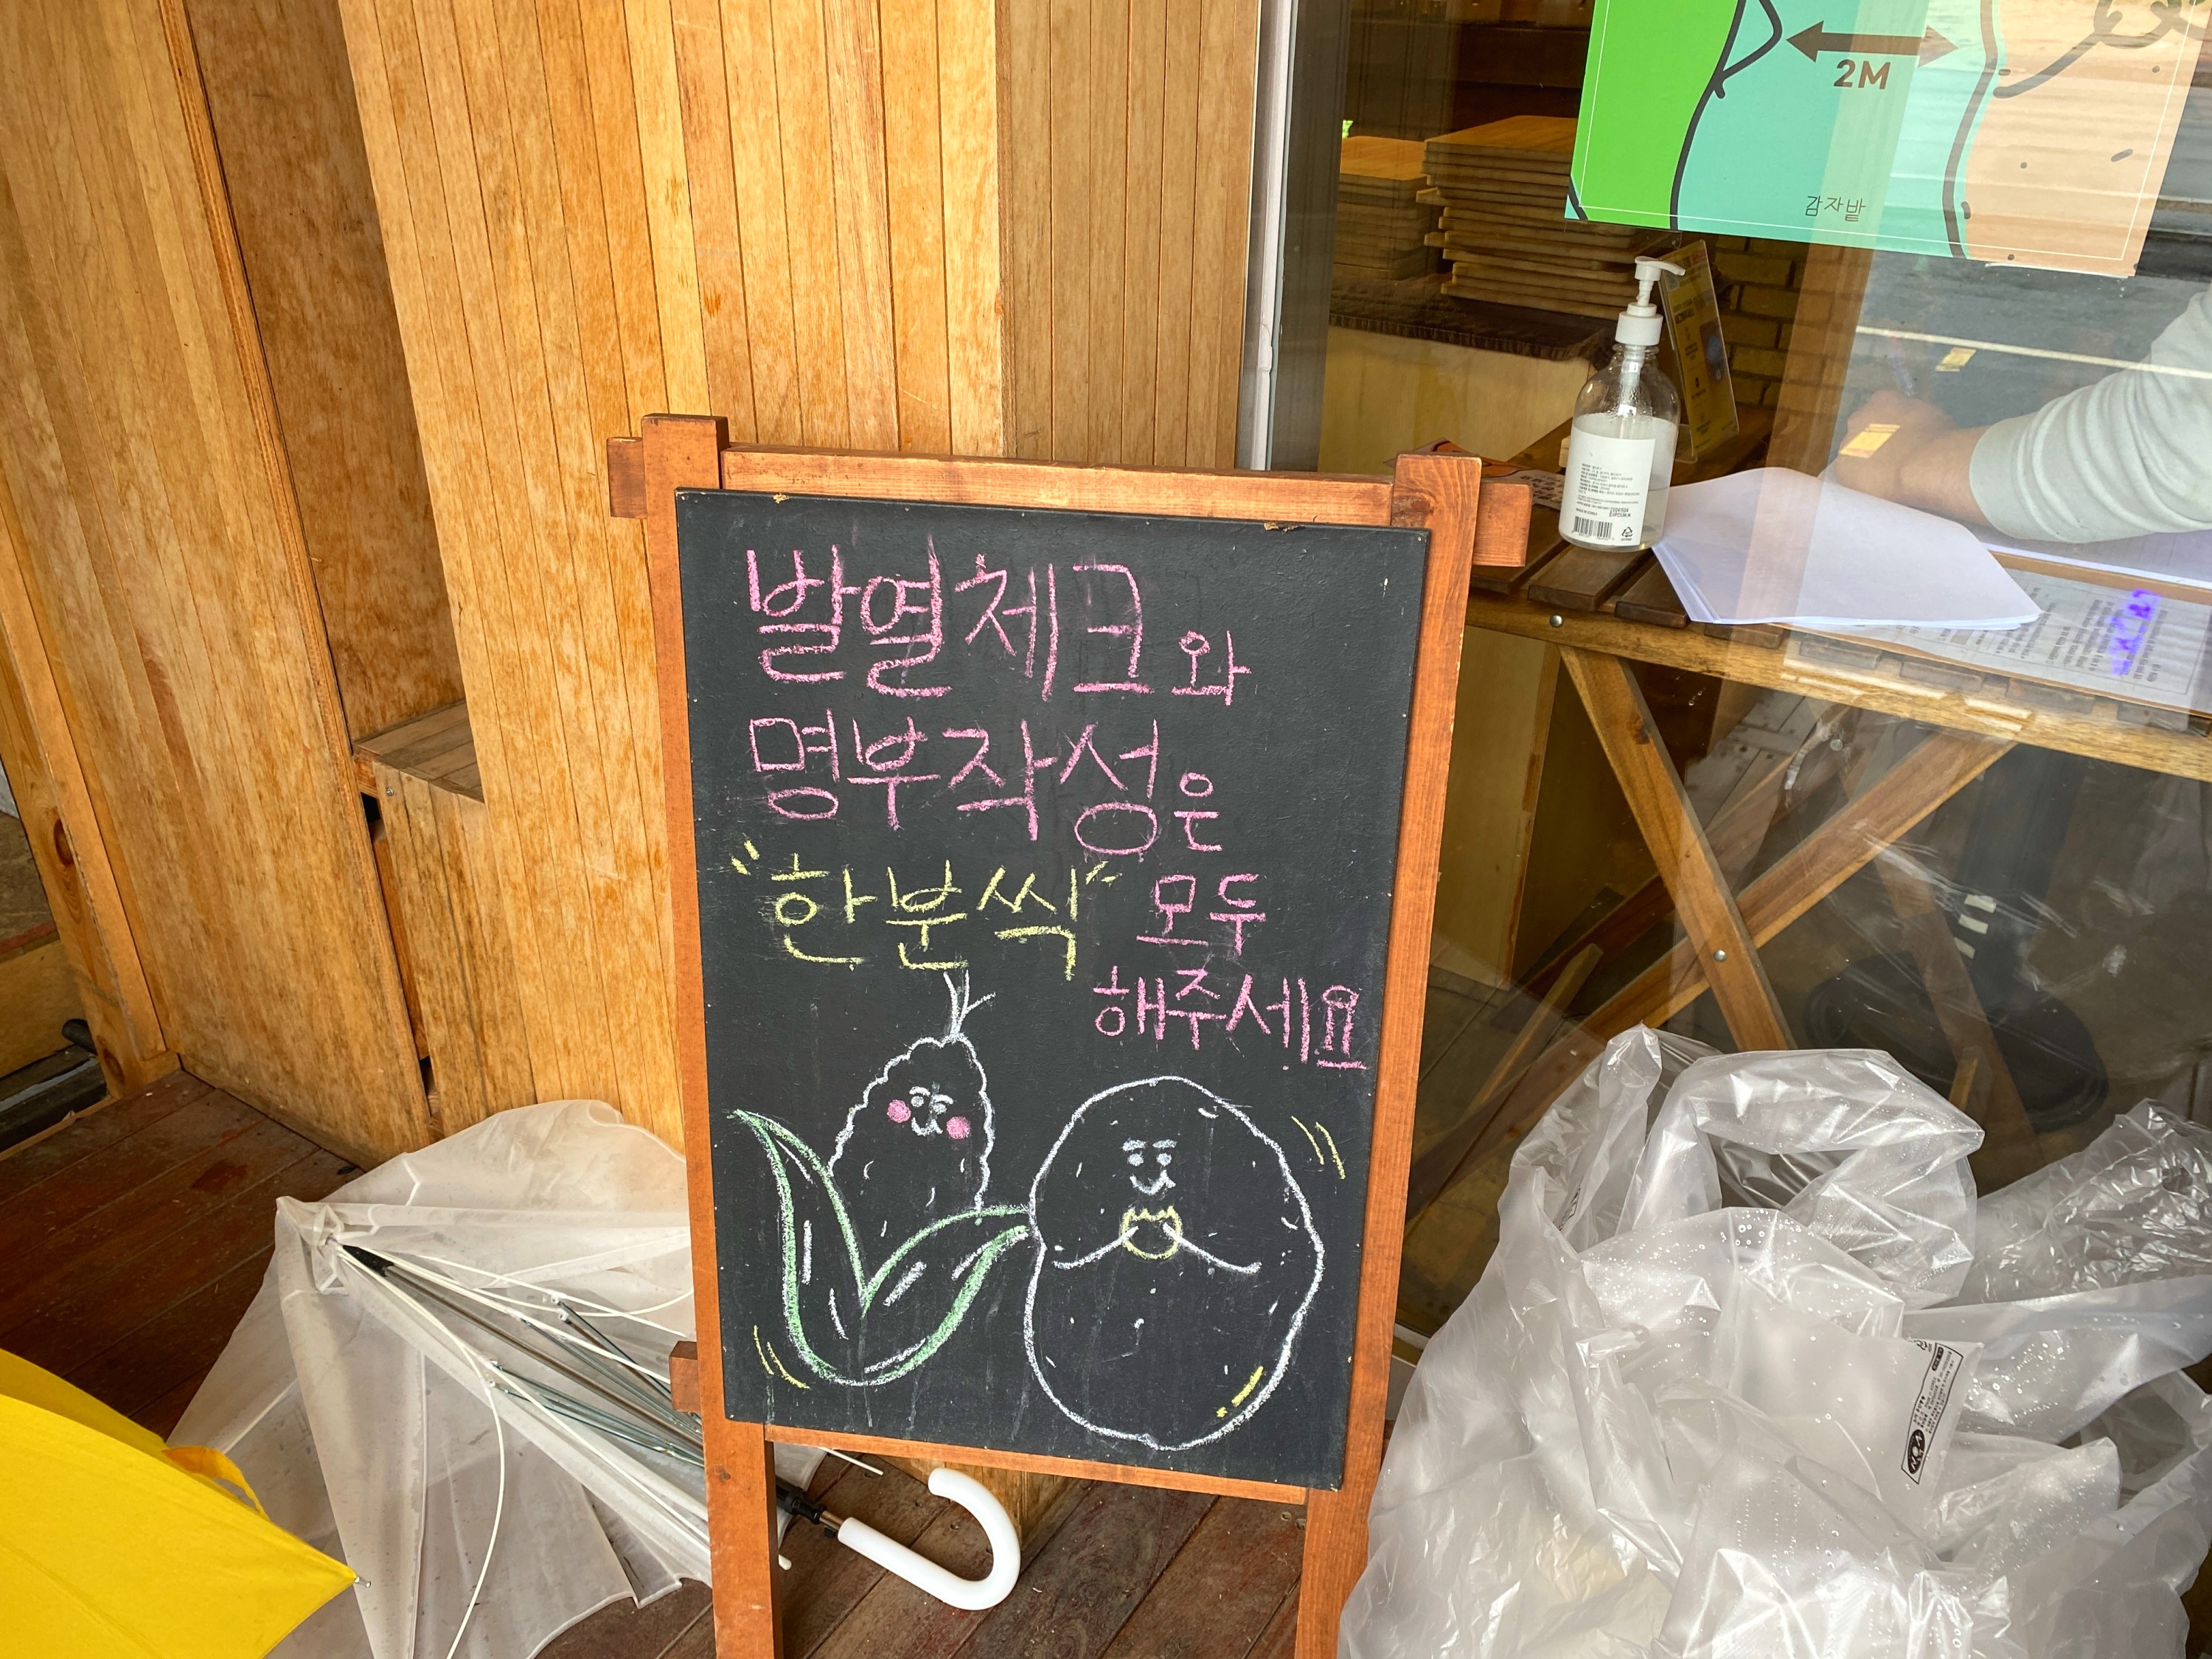 2M
감자밭
발열체크와
명부작성은
"한분씩" 모두
해주세요